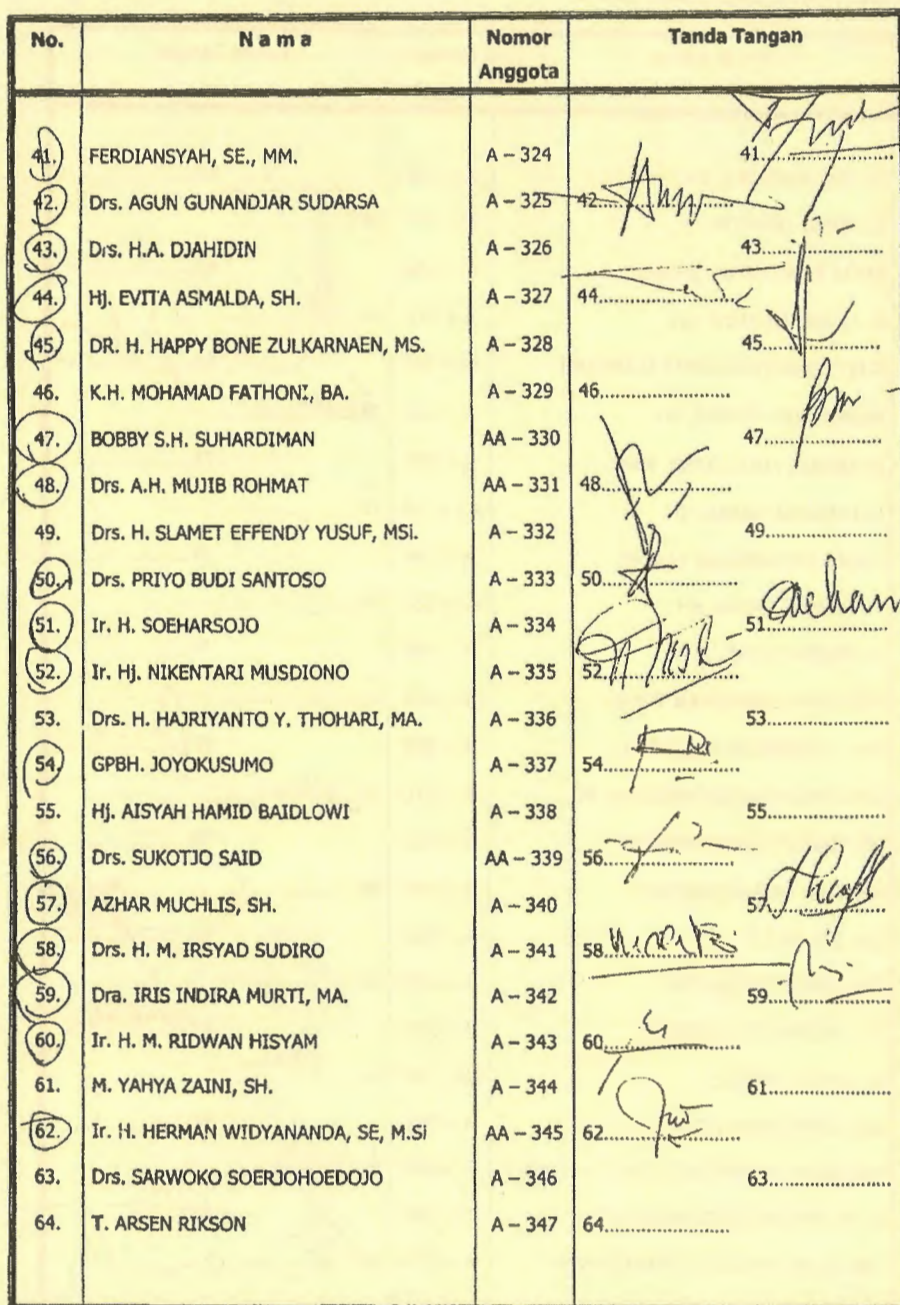 No. Nama Nomor Anggota Tanda Tangan
41. FERDIANSYAH, SE., MM. A – 324 41...................
42. Drs. AGUN GUNANDJAR SUDARSA A – 325 42...................
43. Drs. H.A. DJAHIDIN A – 326 43...................
44. Hj. EVITA ASMALDA, SH. A – 327 44...................
45. DR. H. HAPPY BONE ZULKARNAEN, MS. A – 328 45...................
46. K.H. MOHAMAD FATHONI, BA. A – 329 46...................
47. BOBBY S.H. SUHARDIMAN AA – 330 47...................
48. Drs. A.H. MUJIB ROHMAT AA – 331 48...................
49. Drs. H. SLAMET EFFENDY YUSUF, MSi. A – 332 49...................
50. Drs. PRIYO BUDI SANTOSO A – 333 50...................
51. Ir. H. SOEHARSOJO A – 334 51...................
52. Ir. Hj. NIKENTARI MUSDIONO A – 335 52...................
53. Drs. H. HAJRIYANTO Y. THOHARI, MA. A – 336 53...................
54. GPBH. JOYOKUSUMO A – 337 54...................
55. Hj. AISYAH HAMID BAIDLOWI A – 338 55...................
56. Drs. SUKOTJO SAID AA – 339 56...................
57. AZHAR MUCHLIS, SH. A – 340 57...................
58. Drs. H. M. IRSYAD SUDIRO A – 341 58...................
59. Dra. IRIS INDIRA MURTI, MA. A – 342 59...................
60. Ir. H. M. RIDWAN HISYAM A – 343 60...................
61. M. YAHYA ZAINI, SH. A – 344 61...................
62. Ir. H. HERMAN WIDYANANDA, SE, M.Si AA – 345 62...................
63. Drs. SARWOKO SOERJOHOEDOJO A – 346 63...................
64. T. ARSEN RIKSON A – 347 64...................